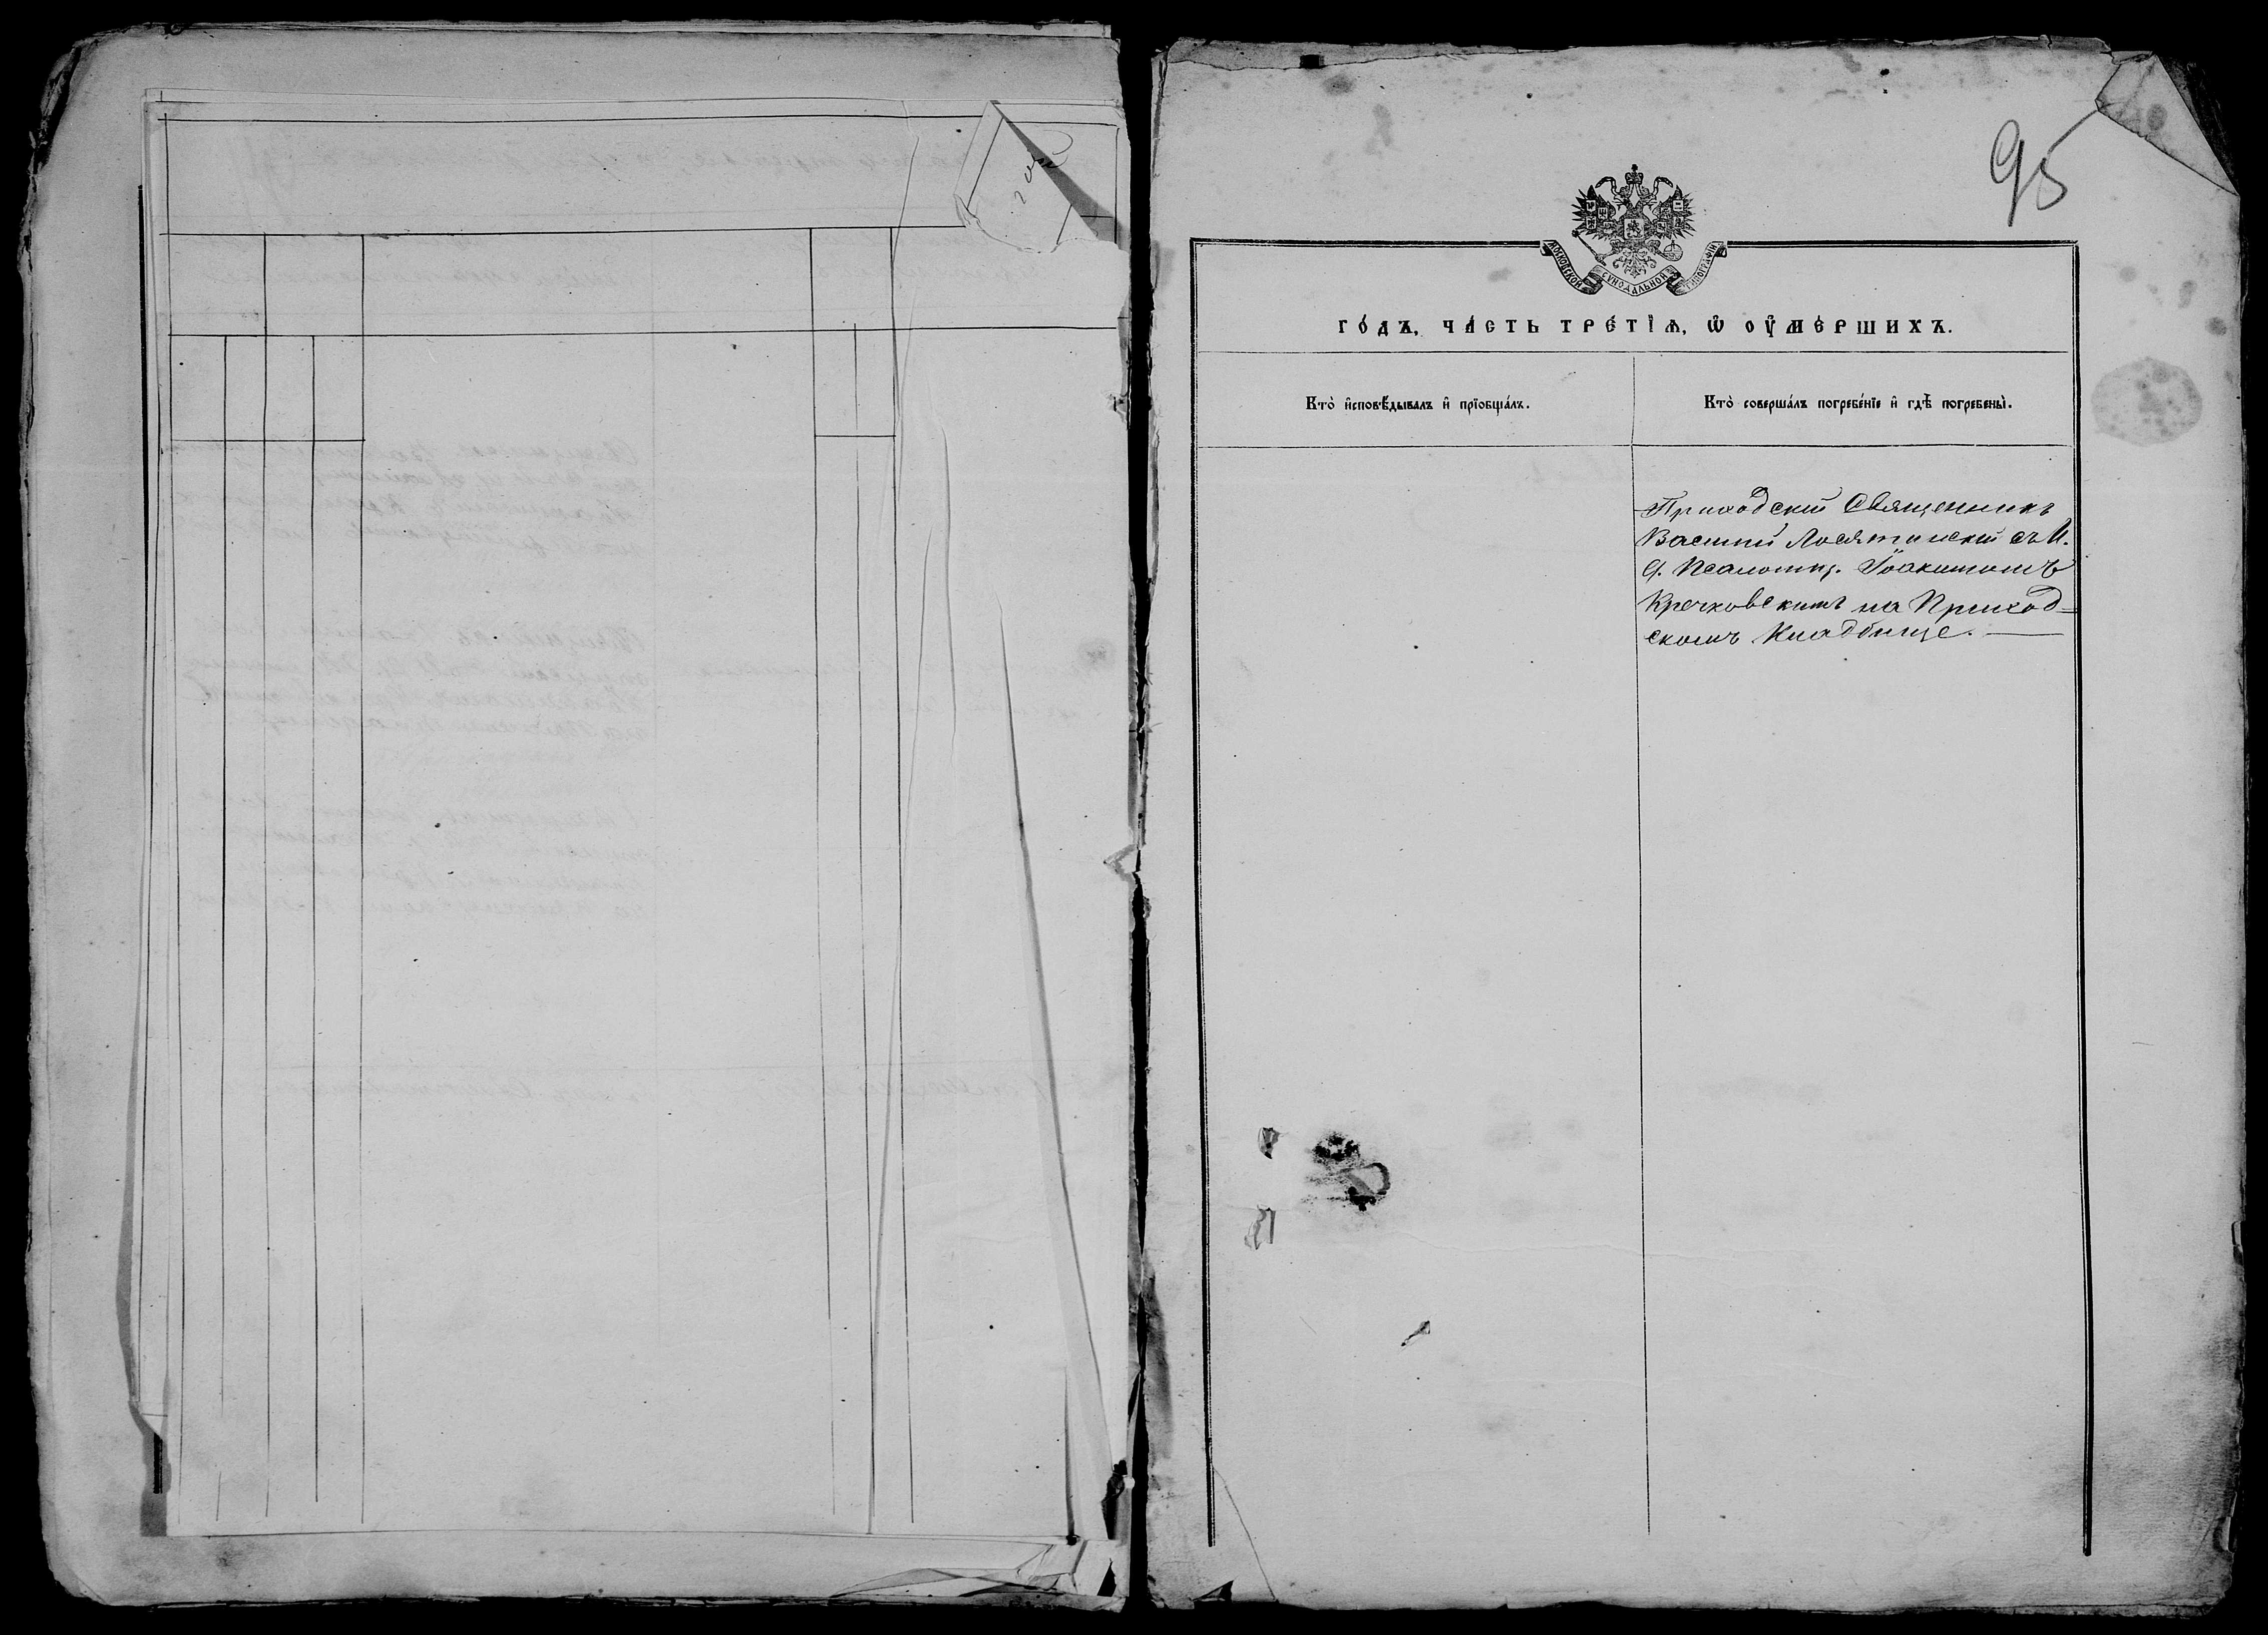 года
95
МОСКОВСКОЙ СУНОДАЛЬНОЙ ТИПОГРАФІИ
ГО́ДЪ, ЧА́СТЬ ТРЕ́ТІѦ, Ѡ҆ ОУ҆МЕ́РШИХЪ.
Кто̀ и҆сповѣ́дывалъ и҆ прїобща́лъ.
Кто̀ соверша́лъ погребе́нїе и҆ гдѣ̀ погребены̀.
Приходскій Священникъ
Василій Лосятинскій съ И.
д. Псаломщ. Іоакимомъ
Кречковскимъ на Приход=
скомъ Кладбище.